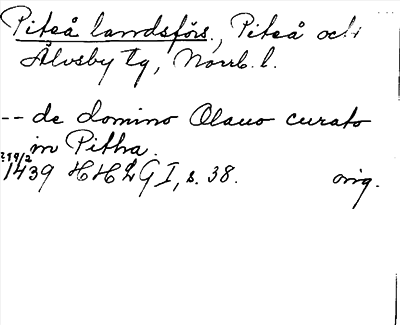 Piteå landsförs., Piteå och
Älvsby tg, Norrb. l.
-- de domino Olauo curato
in Pitha.
1439 HHLGI, s. 38. orig.